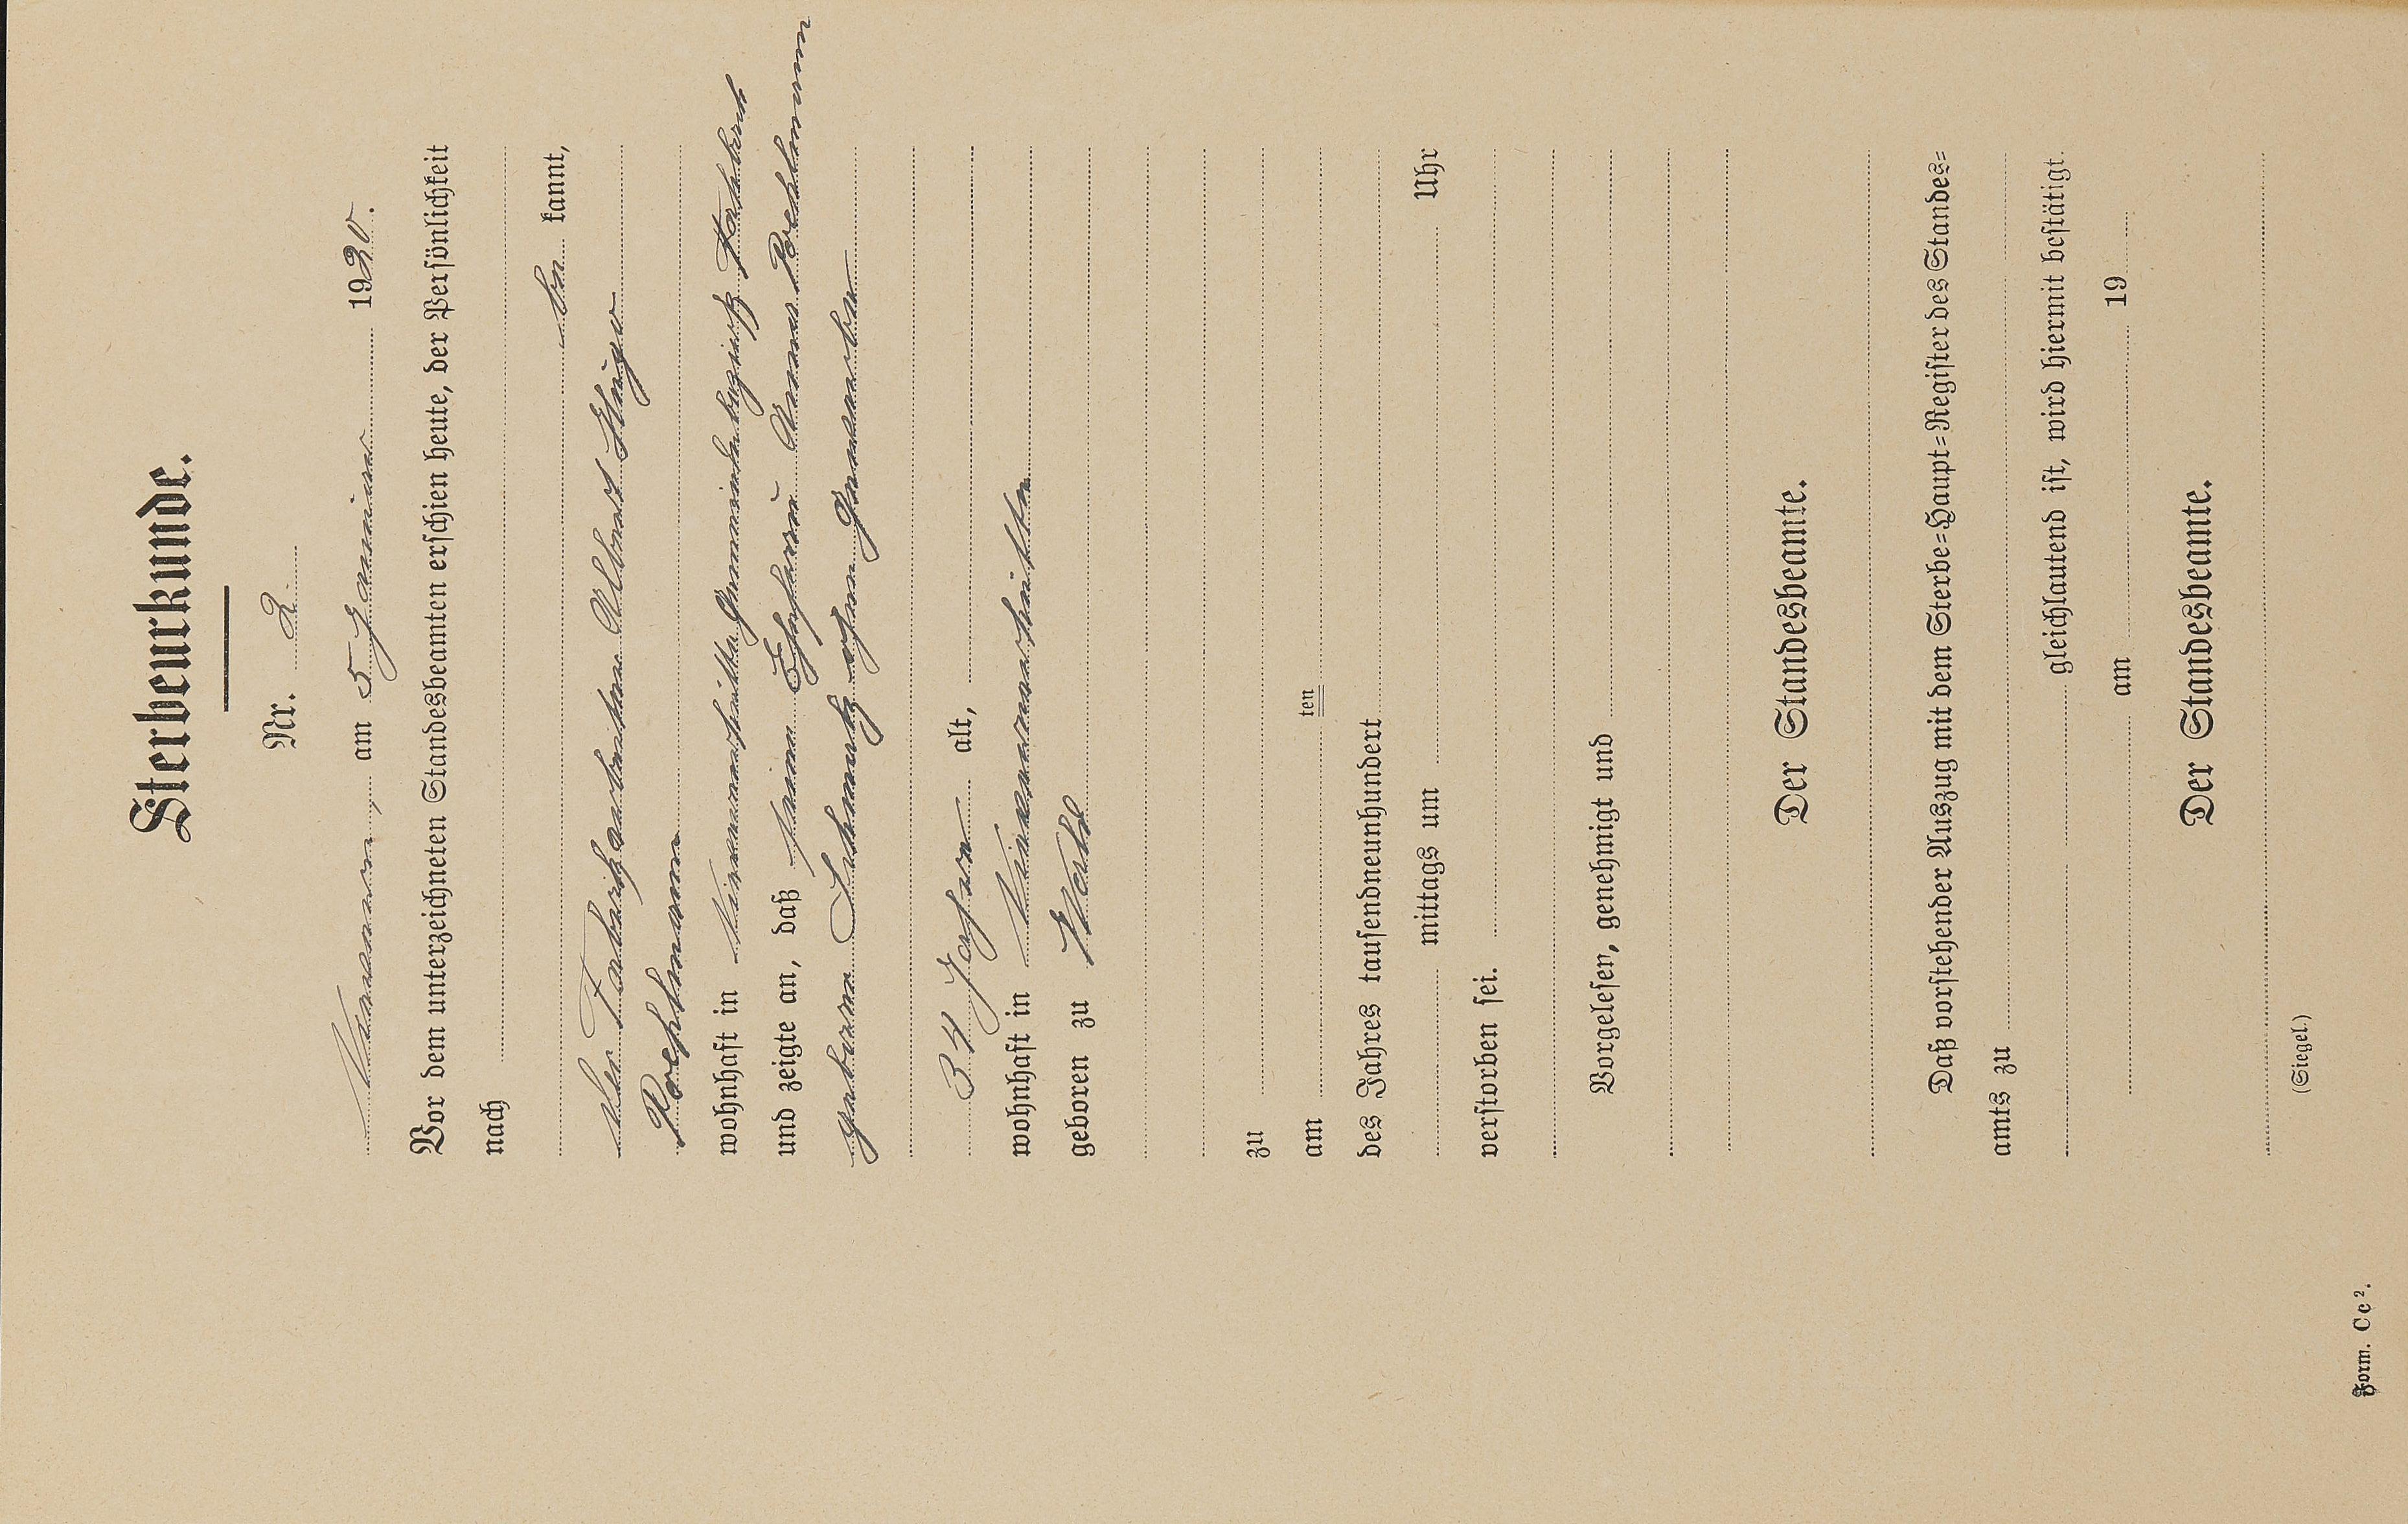 Sterbeurkunde.
Nr. 2
am 5 Januar 1920.
Vor dem unterzeichneten Standesbeamten erschien heute, der Persönlichkeit
nach
be kannt,
der Fabrikarbeiter Albert Hugo
wohnhaft in Gemeindebezirk
und zeigte an, daß seine Ehefrau Anna
geborene Schantz
34 Jahre alt,
wohnhaft in
geboren zu Wald
zu
am ten
des Jahres tausendneunhundert
mittags um Uhr
verstorben sei.
Vorgelesen, genehmigt und
Der Standesbeamte.
Daß vorstehender Auszug mit dem Sterbe=Haupt=Register des Standes=
amts zu
gleichlautend ist, wird hiermit bestätigt.
am 19
Der Standesbeamte.
(Siegel.)
Form. Cc².